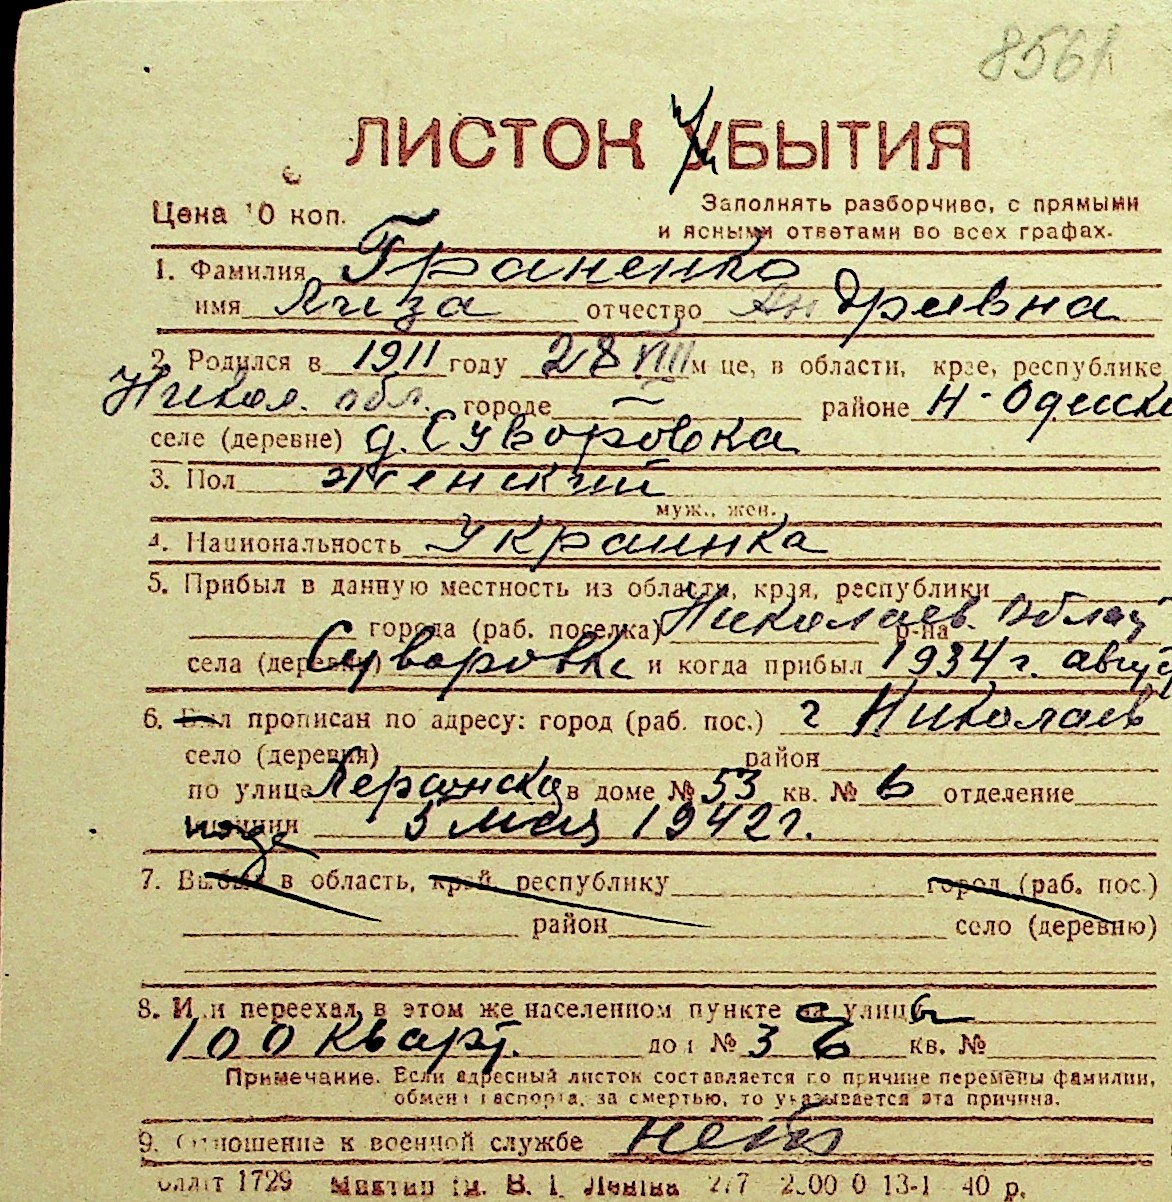 8561
ЛИСТОК УБЫТИЯ
Цена 10 коп.
Заполнять разборчиво, с прямыми
и ясными ответами во всех графах.
1. Фамилия Граненко
имя Лиза отчество Андреевна
2. Родился в 1911 году 28 VIII м це, в области, крае, республике
Никол. обл. городе — районе Н-Одесск
селе (деревне) д. Суворовка
3. Пол женский
муж., жен.
4. Национальность Украинка
5. Прибыл в данную местность из области, края, республики
города (раб. поселка) Николаев. Област р-на
села (деревни) Суворовка и когда прибыл 1934 г. август
6. Был прописан по адресу: город (раб. пос.) г Николаев
село (деревня) район
по улице Херсонска в доме № 53 кв. № 6 отделение
милиции 5 мая 1942 г.
7. Выбыл в область, край, республику город (раб. пос.)
район село (деревню)
8. Или переехал в этом же населенном пункте на улицу в
100 Кварт. дом № 3 Б кв. №
Примечание. Если адресный листок составляется по причине перемены фамилии,
обмена паспорта, за смертью, то указывается эта причина.
9. Отношение к военной службе нет
1729 В. І. Леніна 13-1 40 р.